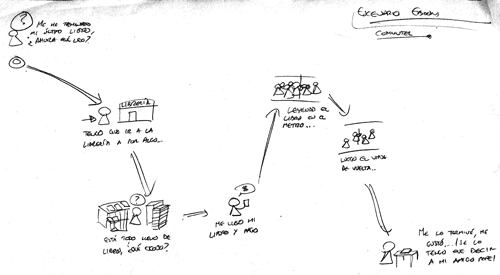 ME HE TERMINADO
MI ÚLTIMO LIBRO,
¿AHORA QUÉ LEO?
?
ESCENARIO
COMMUTER
LIBRERIA
TENGO QUE IR A LA
LIBRERÍA A POR ALGO...
?
ESTÁ TODO LLENO DE
LIBROS, ¿QUÉ ESCOJO?
ME LLEVO MI
LIBRO Y PAGO
LEYENDO EL
LIBRO EN EL
METRO...
LUEGO EL VIAJE
DE VUELTA...
ME LO TERMINÉ, ME
GUSTÓ,...! SE LO
TENGO QUE DECIR
A MI AMIGO